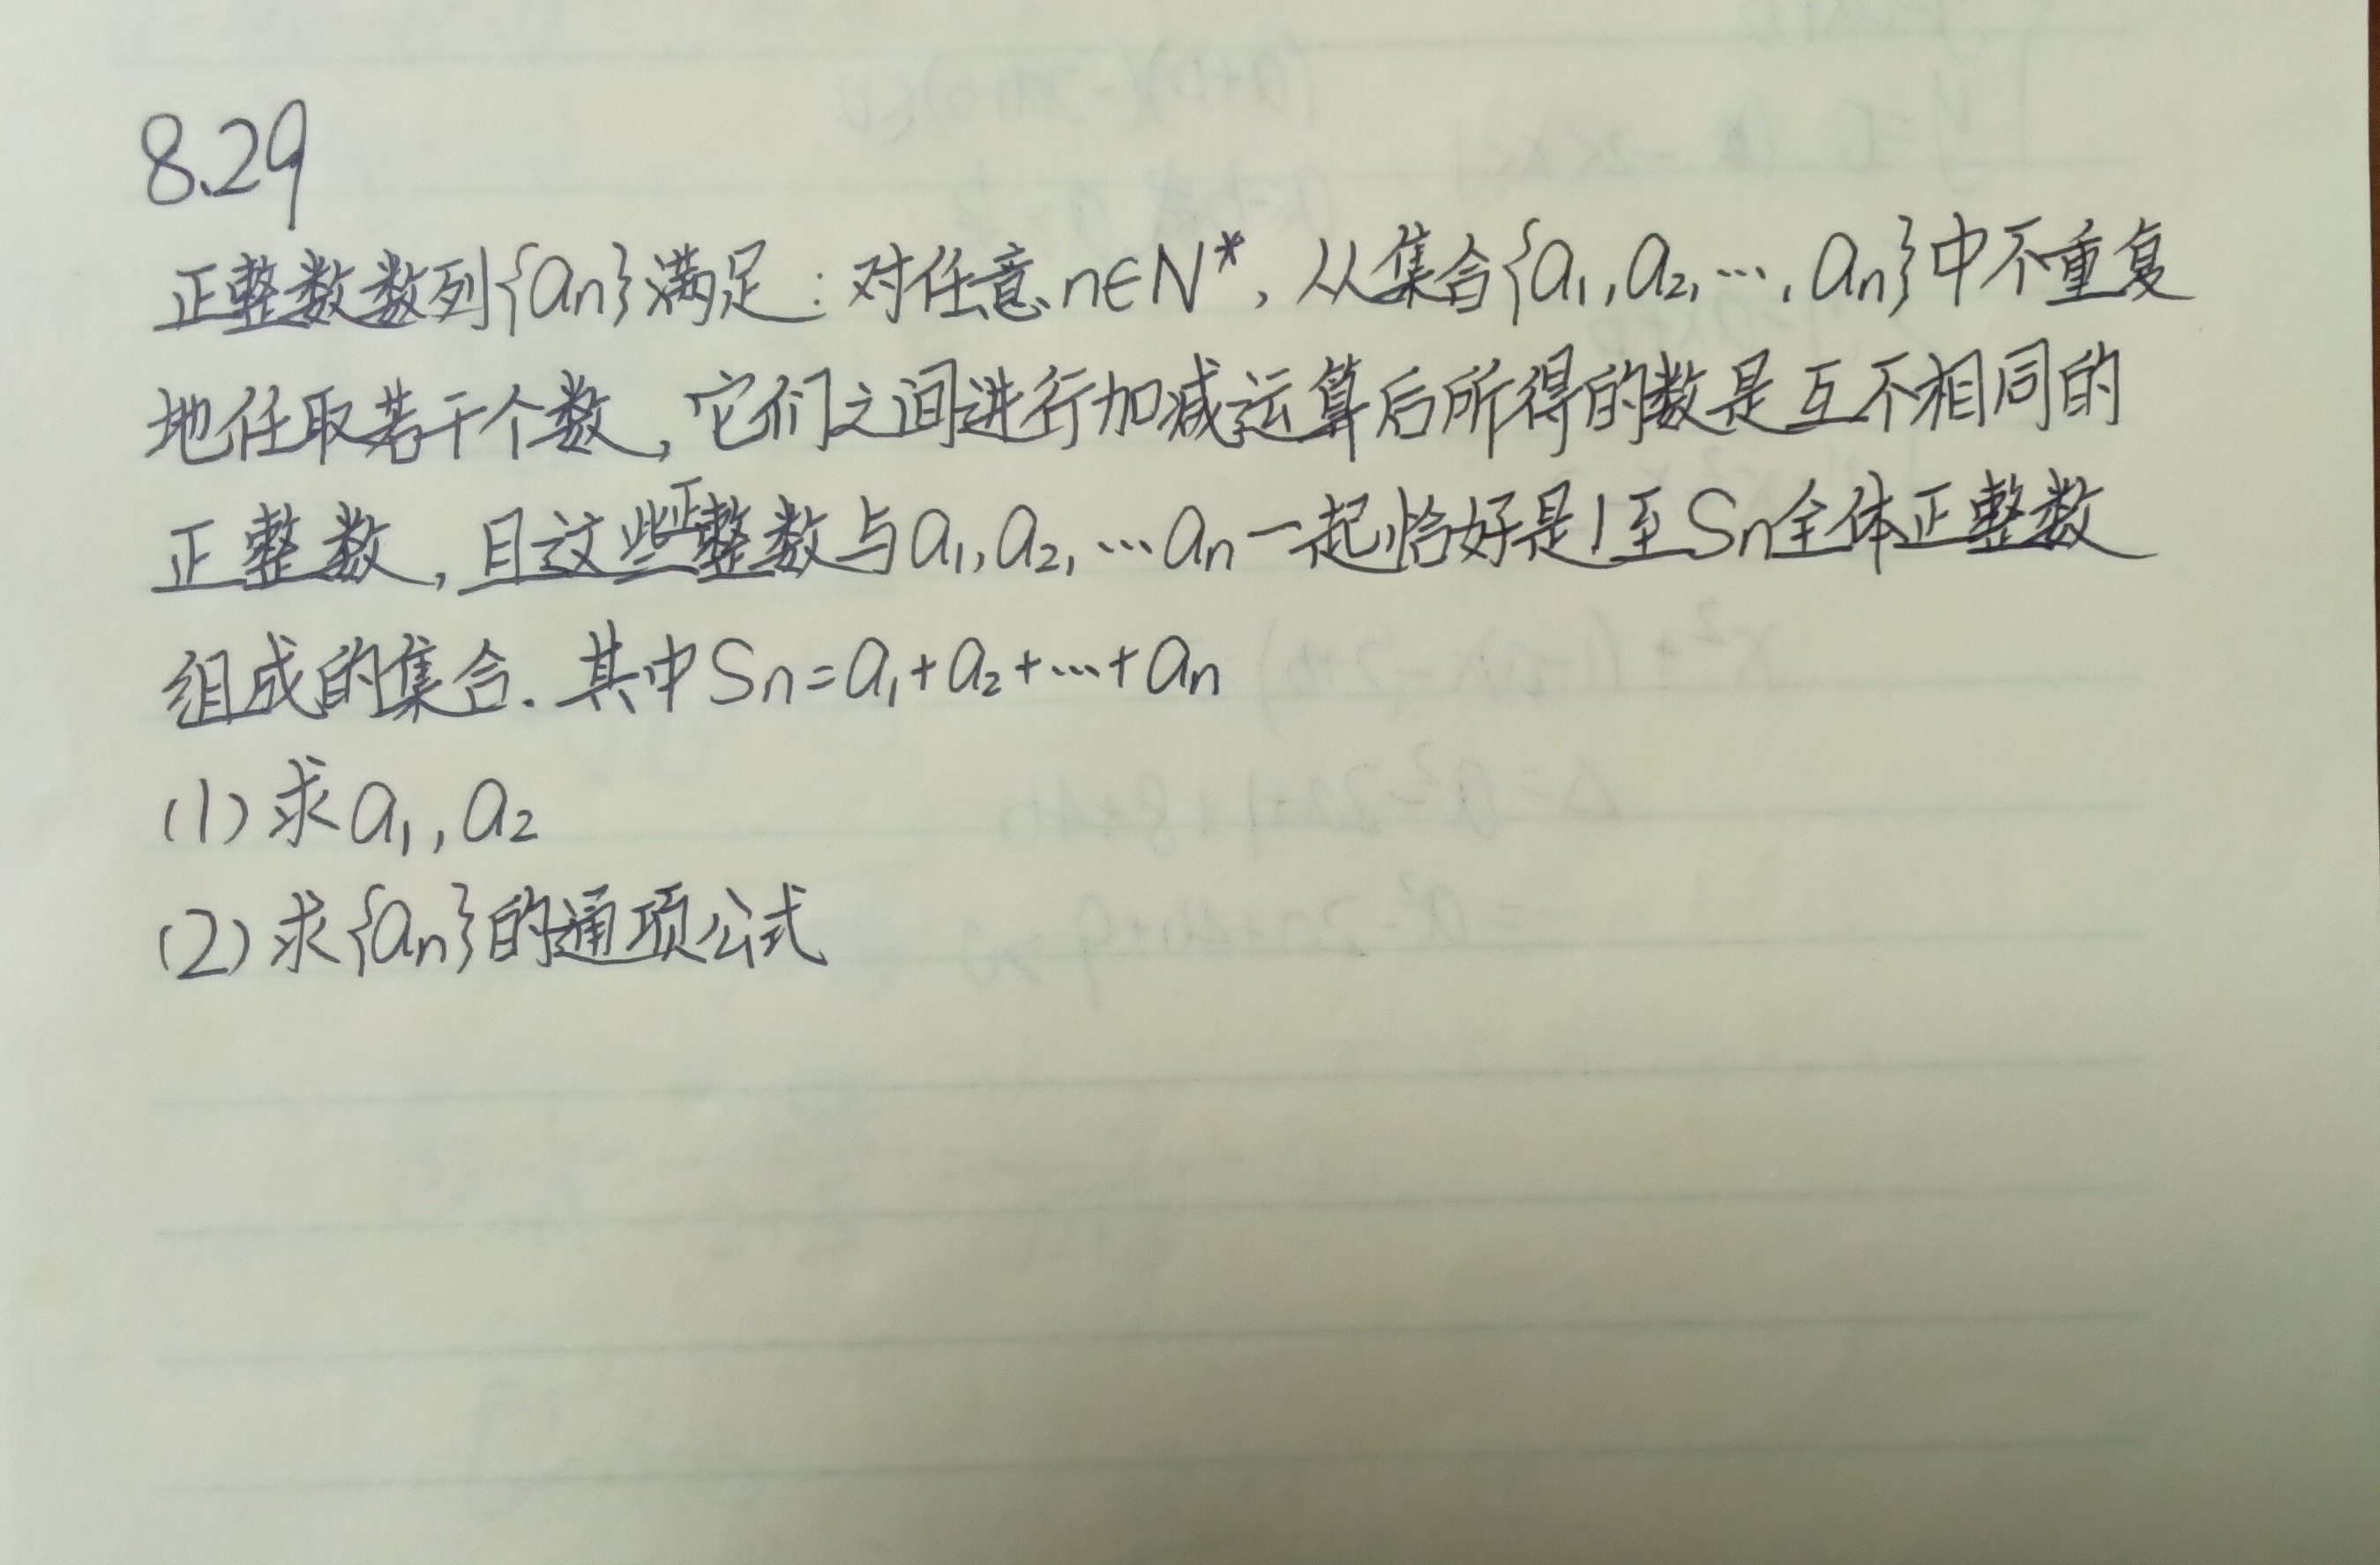 8.29
正整数数列{an}满足：对任意n∈N*，从集合{a1,a2,…,an}中不重复
地任取若干个数，它们之间进行加减运算后所得的数是互不相同的
正整数，且这些正整数与a1,a2,…an一起恰好是1至Sn全体正整数
组成的集合.其中Sn=a1+a2+…+an
(1)求a1,a2
(2)求{an}的通项公式